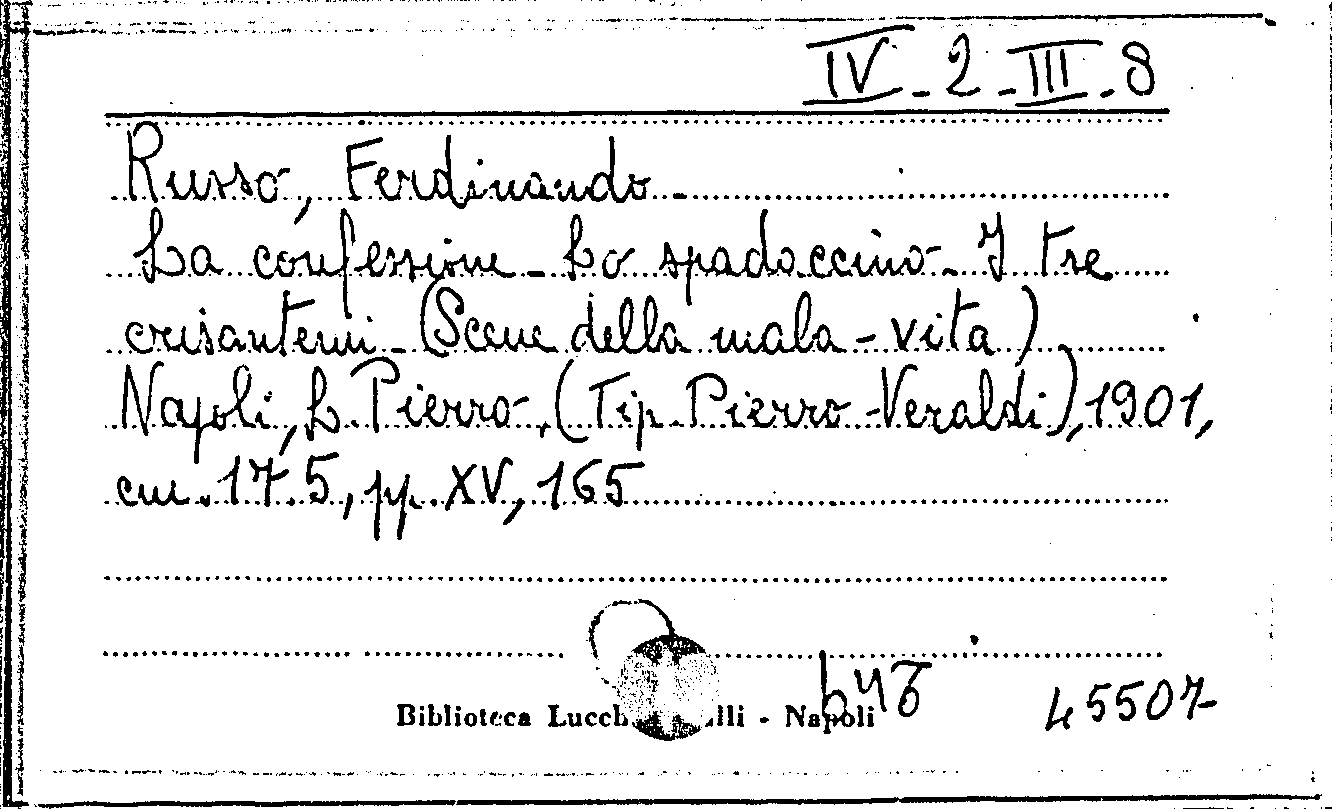 IV-2-III-8
Russo, Ferdinando-
La confessione-Lo spadaccino-I tre
crisantemi-(Scene della mala-vita)
Napoli, L. Pierro, (Tip. Pierro-Veraldi), 1901,
cm. 17.5, pp. XV, 165
Biblioteca - Napoli
45507